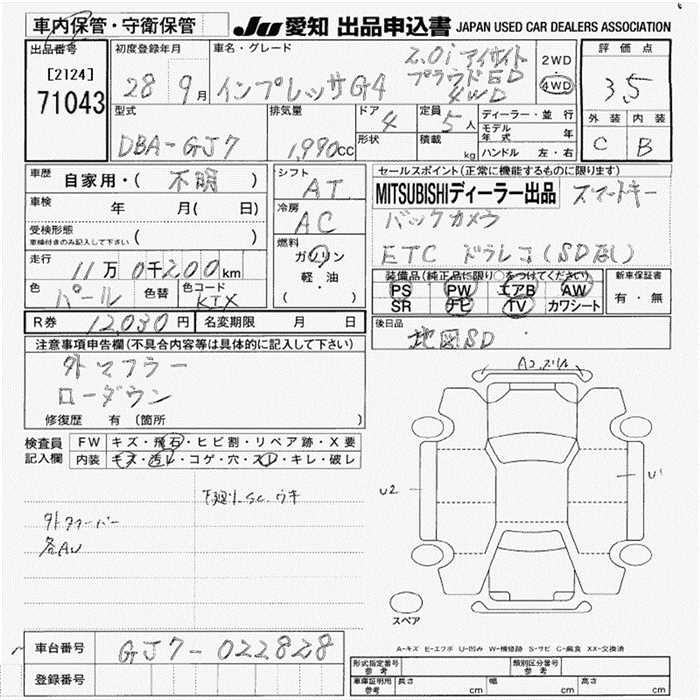 車内保管・守衛保管
JU 愛知 出品申込書 JAPAN USED CAR DEALERS ASSOCIATION
出品番号
[2124]
71043
初度登録年月
28年9月
車名・グレード
インプレッサG4
2.0i アイサイト
プラウドED
4WD
2WD
4WD
評価点
3.5
外装 内装
C B
型式
DBA-GJ7
排気量
1,990cc
ドア
4
形状
定員
5人
積載
kg
ディーラー・並行
モデル年式 年
ハンドル 左・右
車歴 自家用・( 不明 )
車検 年 月( 日)
受検形態
車検付きのみ記入して下さい ( )
走行 11万0千200km
色 パール 色替 色コード KTX
シフト
AT
冷房
AC
燃料
ガソリン
軽・油
( )
セールスポイント(正常に機能するものに限ります)
MITSUBISHIディーラー出品 スマートキー
バックカメラ
ETC ドラレコ(SD無し)
装備品(純正品に限り○をつけてください)
PS PW エアB AW
SR ナビ TV カワシート
新車保証書
有・無
R券 12,030円 名変期限 月 日
後日品
地図SD
注意事項申告欄(不具合内容等は具体的に記入して下さい)
外マフラー
ローダウン
修復歴 有(箇所 )
検査員
記入欄
FW キズ・飛石・ヒビ割・リペア跡・X要
内装 キズ・汚レ・コゲ・穴・スレ・キレ・破レ
下廻り.SC.ウキ
各AU
U2
U1
スペア
A-キズ E-エクボ U-凹み W-補修跡 S-サビ C-腐食 XX-交換済
車台番号 GJ7-022828
登録番号
形式指定番号
参考
類別区分番号
参考
車庫証明用
参考
長さ cm
幅 cm
高さ cm